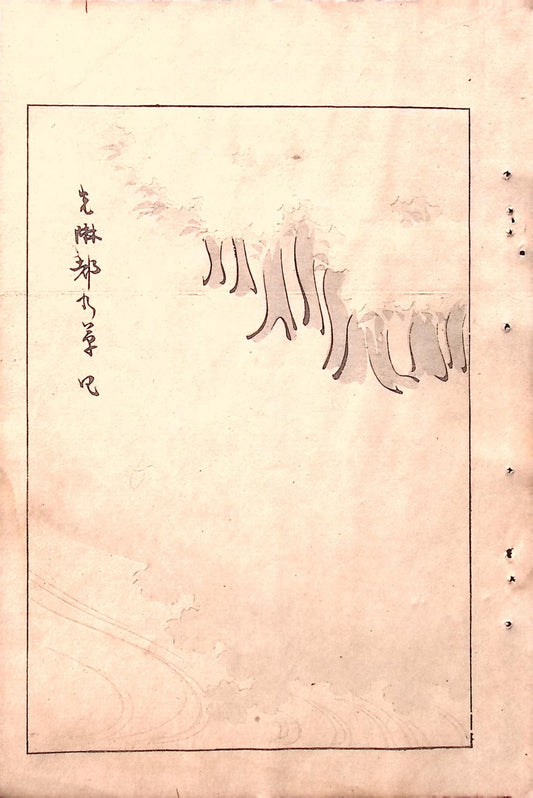 光琳都乃草咫